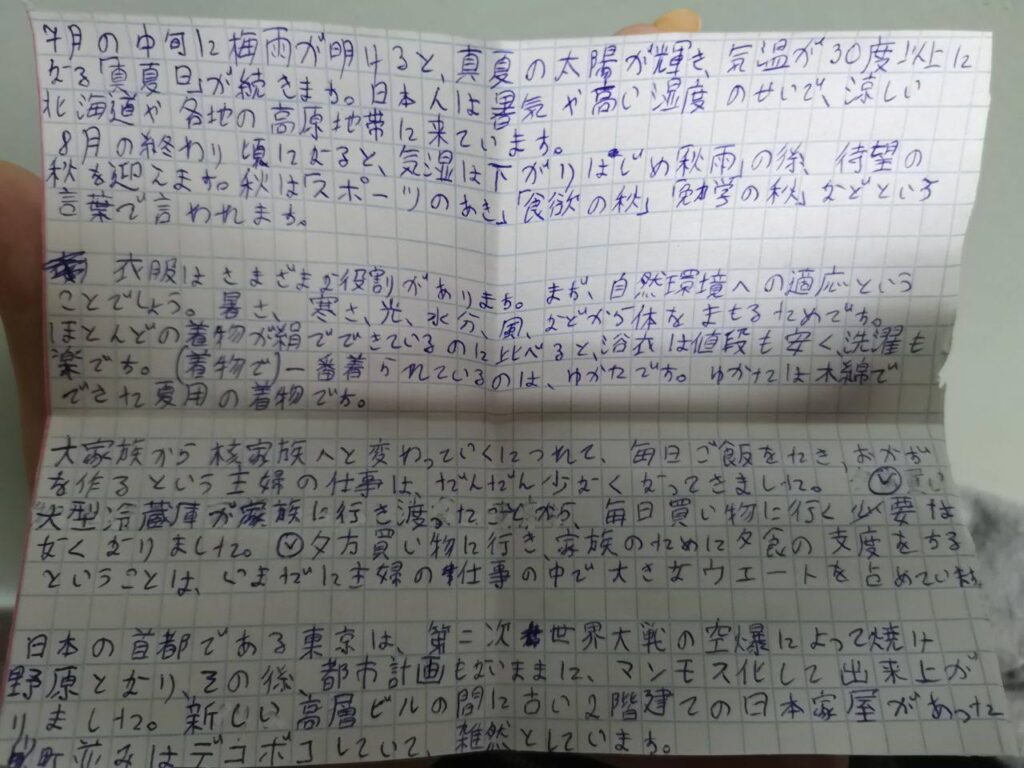 7月の中旬に梅雨が明けると、真夏の太陽が輝き、気温が30度以上に
なる「真夏日」が続きます。日本人は暑気や高い湿度のせいで、涼しい
北海道や各地の高原地帯に来ています。
8月の終わり頃になると、気湿は下がりはじめ「秋雨」の後、待望の
秋を迎えます。秋は「スポーツのあき」「食欲の秋」「勉学の秋」などという
言葉で言われます。
衣服はさまざまな役割があります。まず、自然環境への適応という
ことでしょう。暑さ、寒さ、光、水分、風、などから体をまもるためです。
ほとんどの着物が絹でできているのに比べると、浴衣は値段も安く、洗濯も、
楽です。(着物で)一番着られているのは、ゆかたです。ゆかたは木綿で
できた夏用の着物です。
大家族から核家族へと変わっていくにつれて、毎日ご飯をたき、おかず
を作るという主婦の仕事は、だんだん少なくなってきました。
大型冷蔵庫が家族に行き渡ったことから、毎日買い物に行く必要は
なくなりました。夕方買い物に行き、家族のために夕食の支度をする
ということは、いまだに主婦の仕事の中で大きなウエートを占めています
日本の首都である東京は、第二次世界大戦の空爆によって焼け
野原となり、その後、都市計画もないままに、マンモス化して出来上が
りました。新しい高層ビルの間に古い2階建ての日本家屋があった
町並みはデコボコしていて、雑然としています。